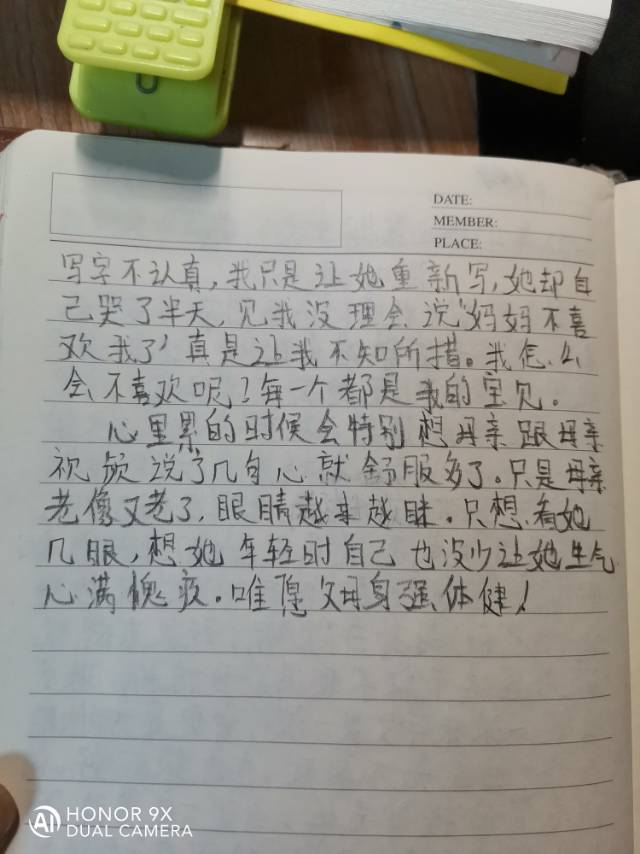 DATE:
MEMBER:
PLACE:
写字不认真，我只是让她重新写，她却自
己哭了半天，见我没理会说“妈妈不喜
欢我了’真是让我不知所措。我怎么
会不喜欢呢！每一个都是我的宝贝。
心里累的时候会特别想母亲跟母亲
视频说了几句心就舒服多了。只是母亲
老像又老了，眼睛越来越眯。只想看她
几眼，想她年轻时自己也没少让她生气
心满愧疚。唯愿父母身强体健！
AI HONOR 9X
DUAL CAMERA